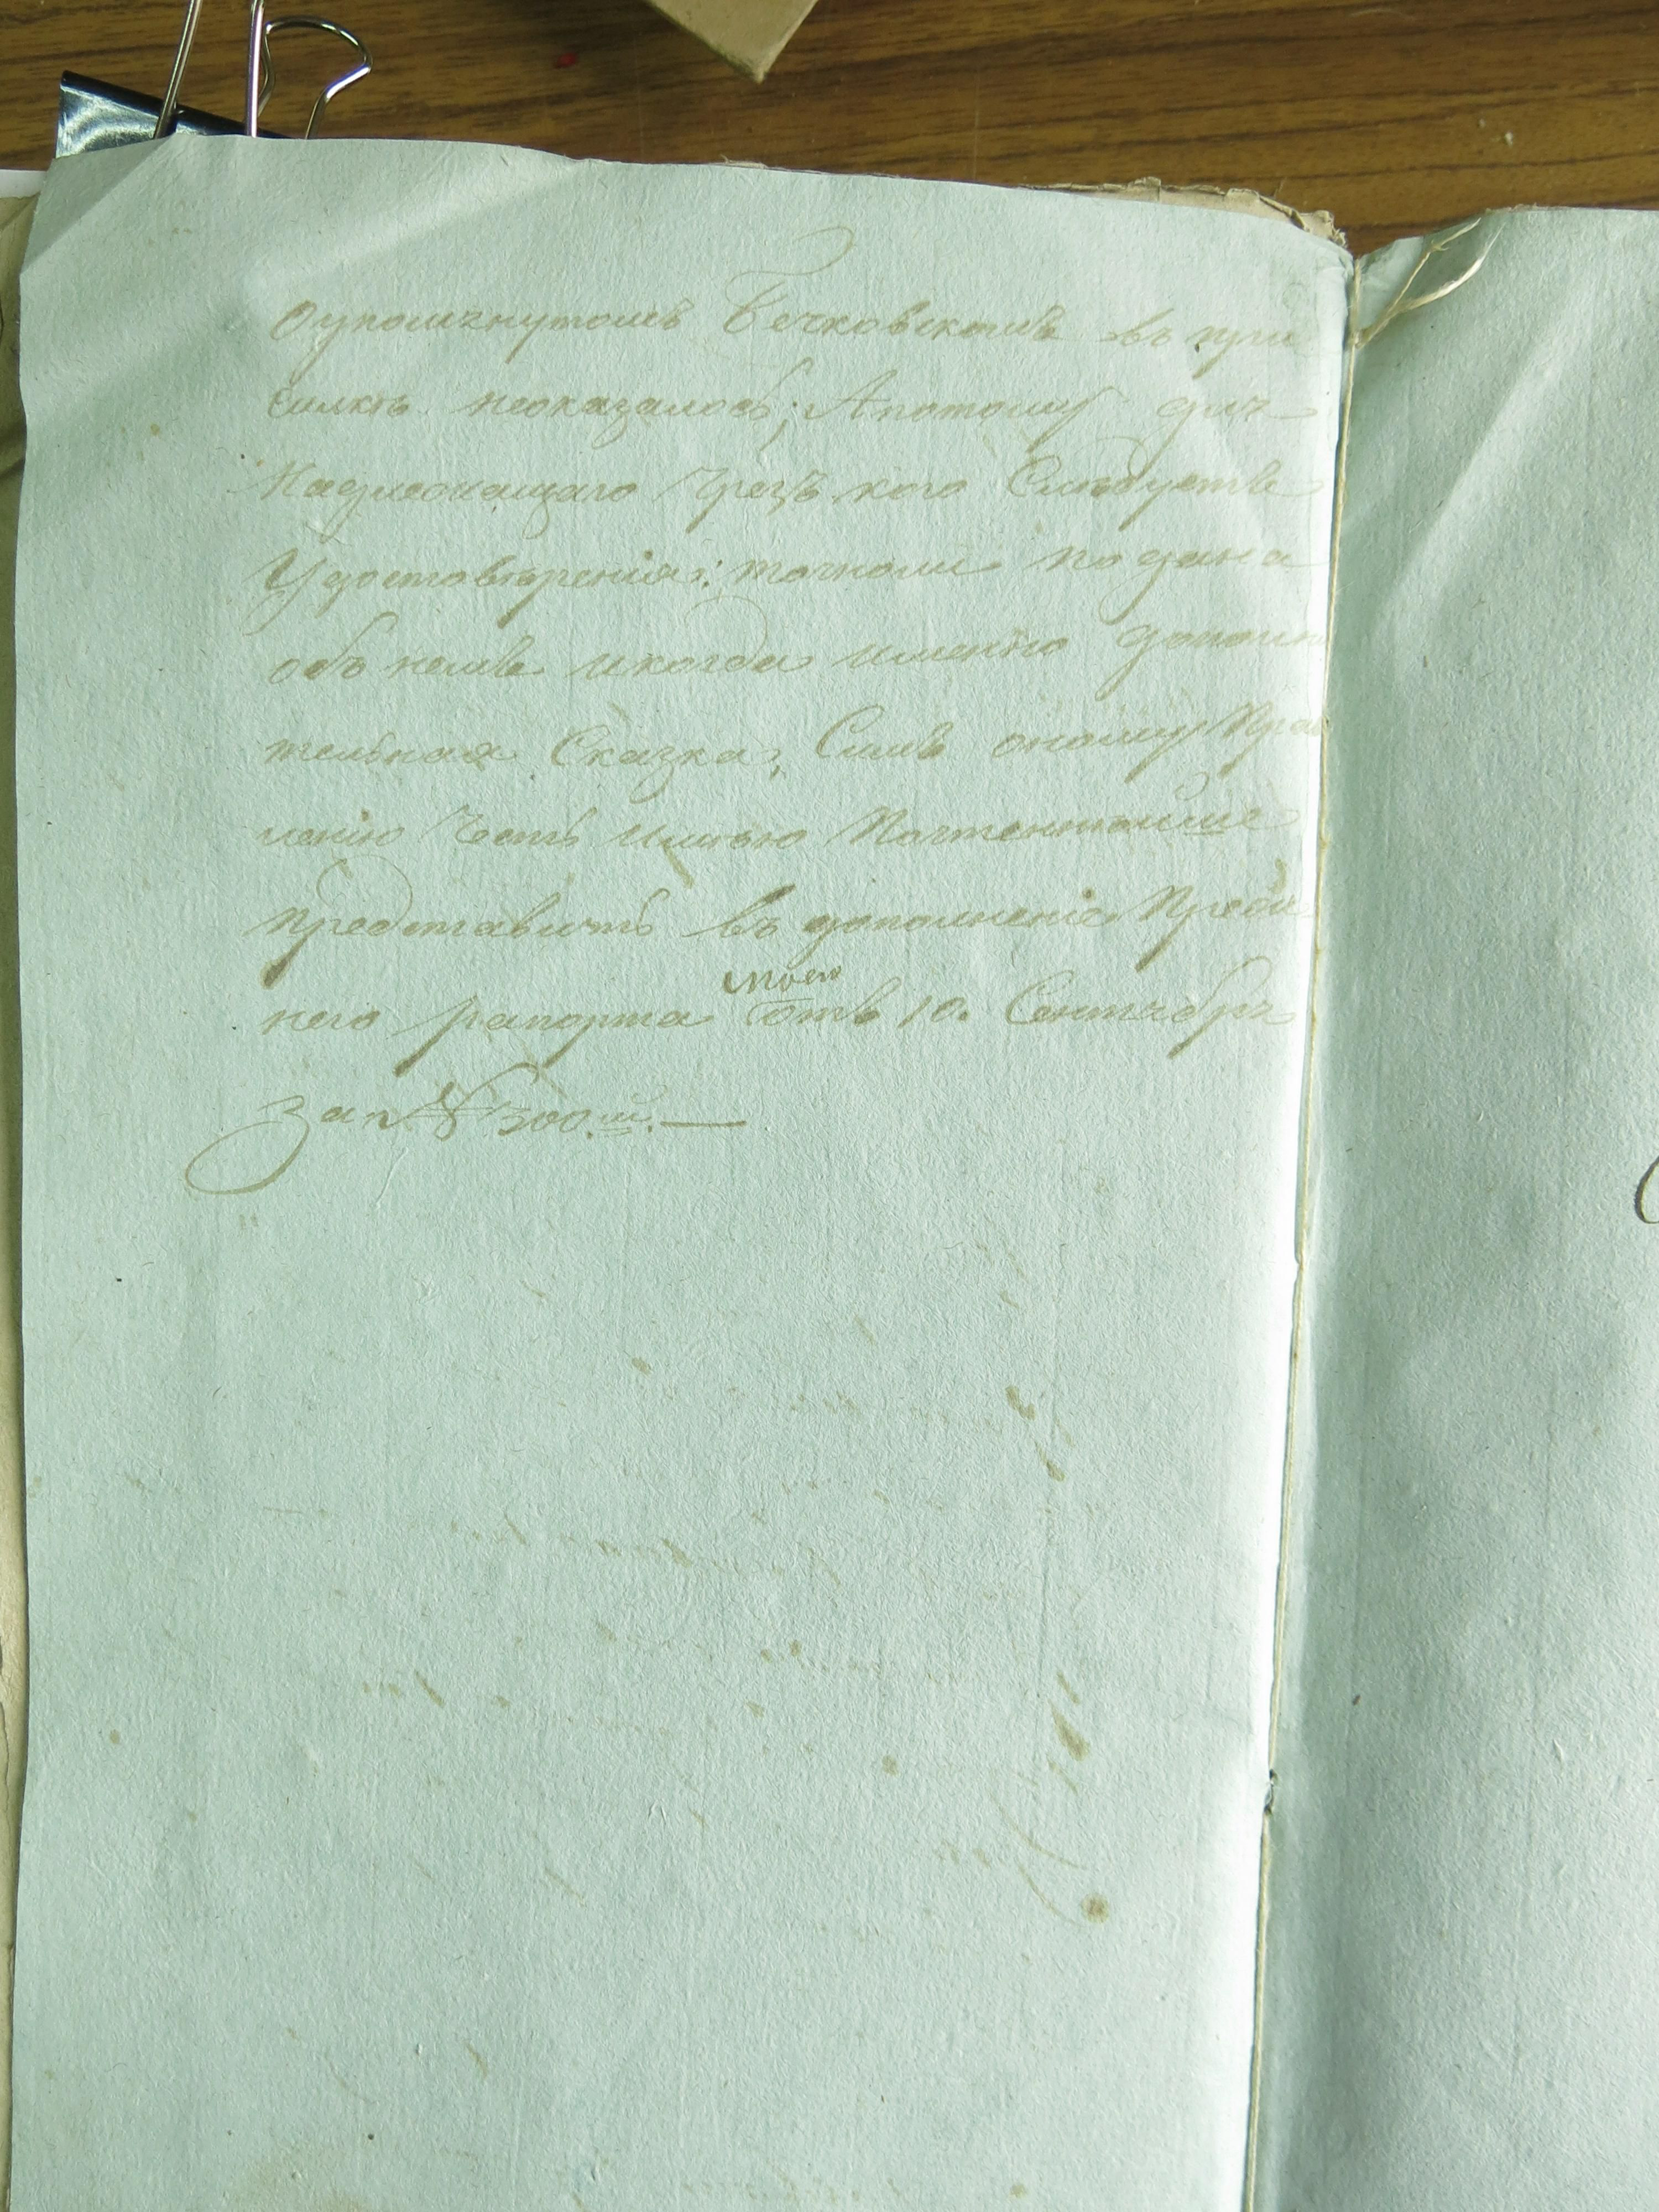 О упомянутомъ Бечковскомъ въ при
сылкѣ неоказалось; Апотому для
Надлежащаго Чрезъ кого Слѣдуетъ
Удостовѣренія: точноли подана
объ немъ икогда имянно дополни
тельная Сказка, Симъ оному Прав
ленію Честь имѣю Почтеннѣйше
представить въ дополненіе Преди
него рапорта моего отъ 10. Сентября
за № 300.м. —